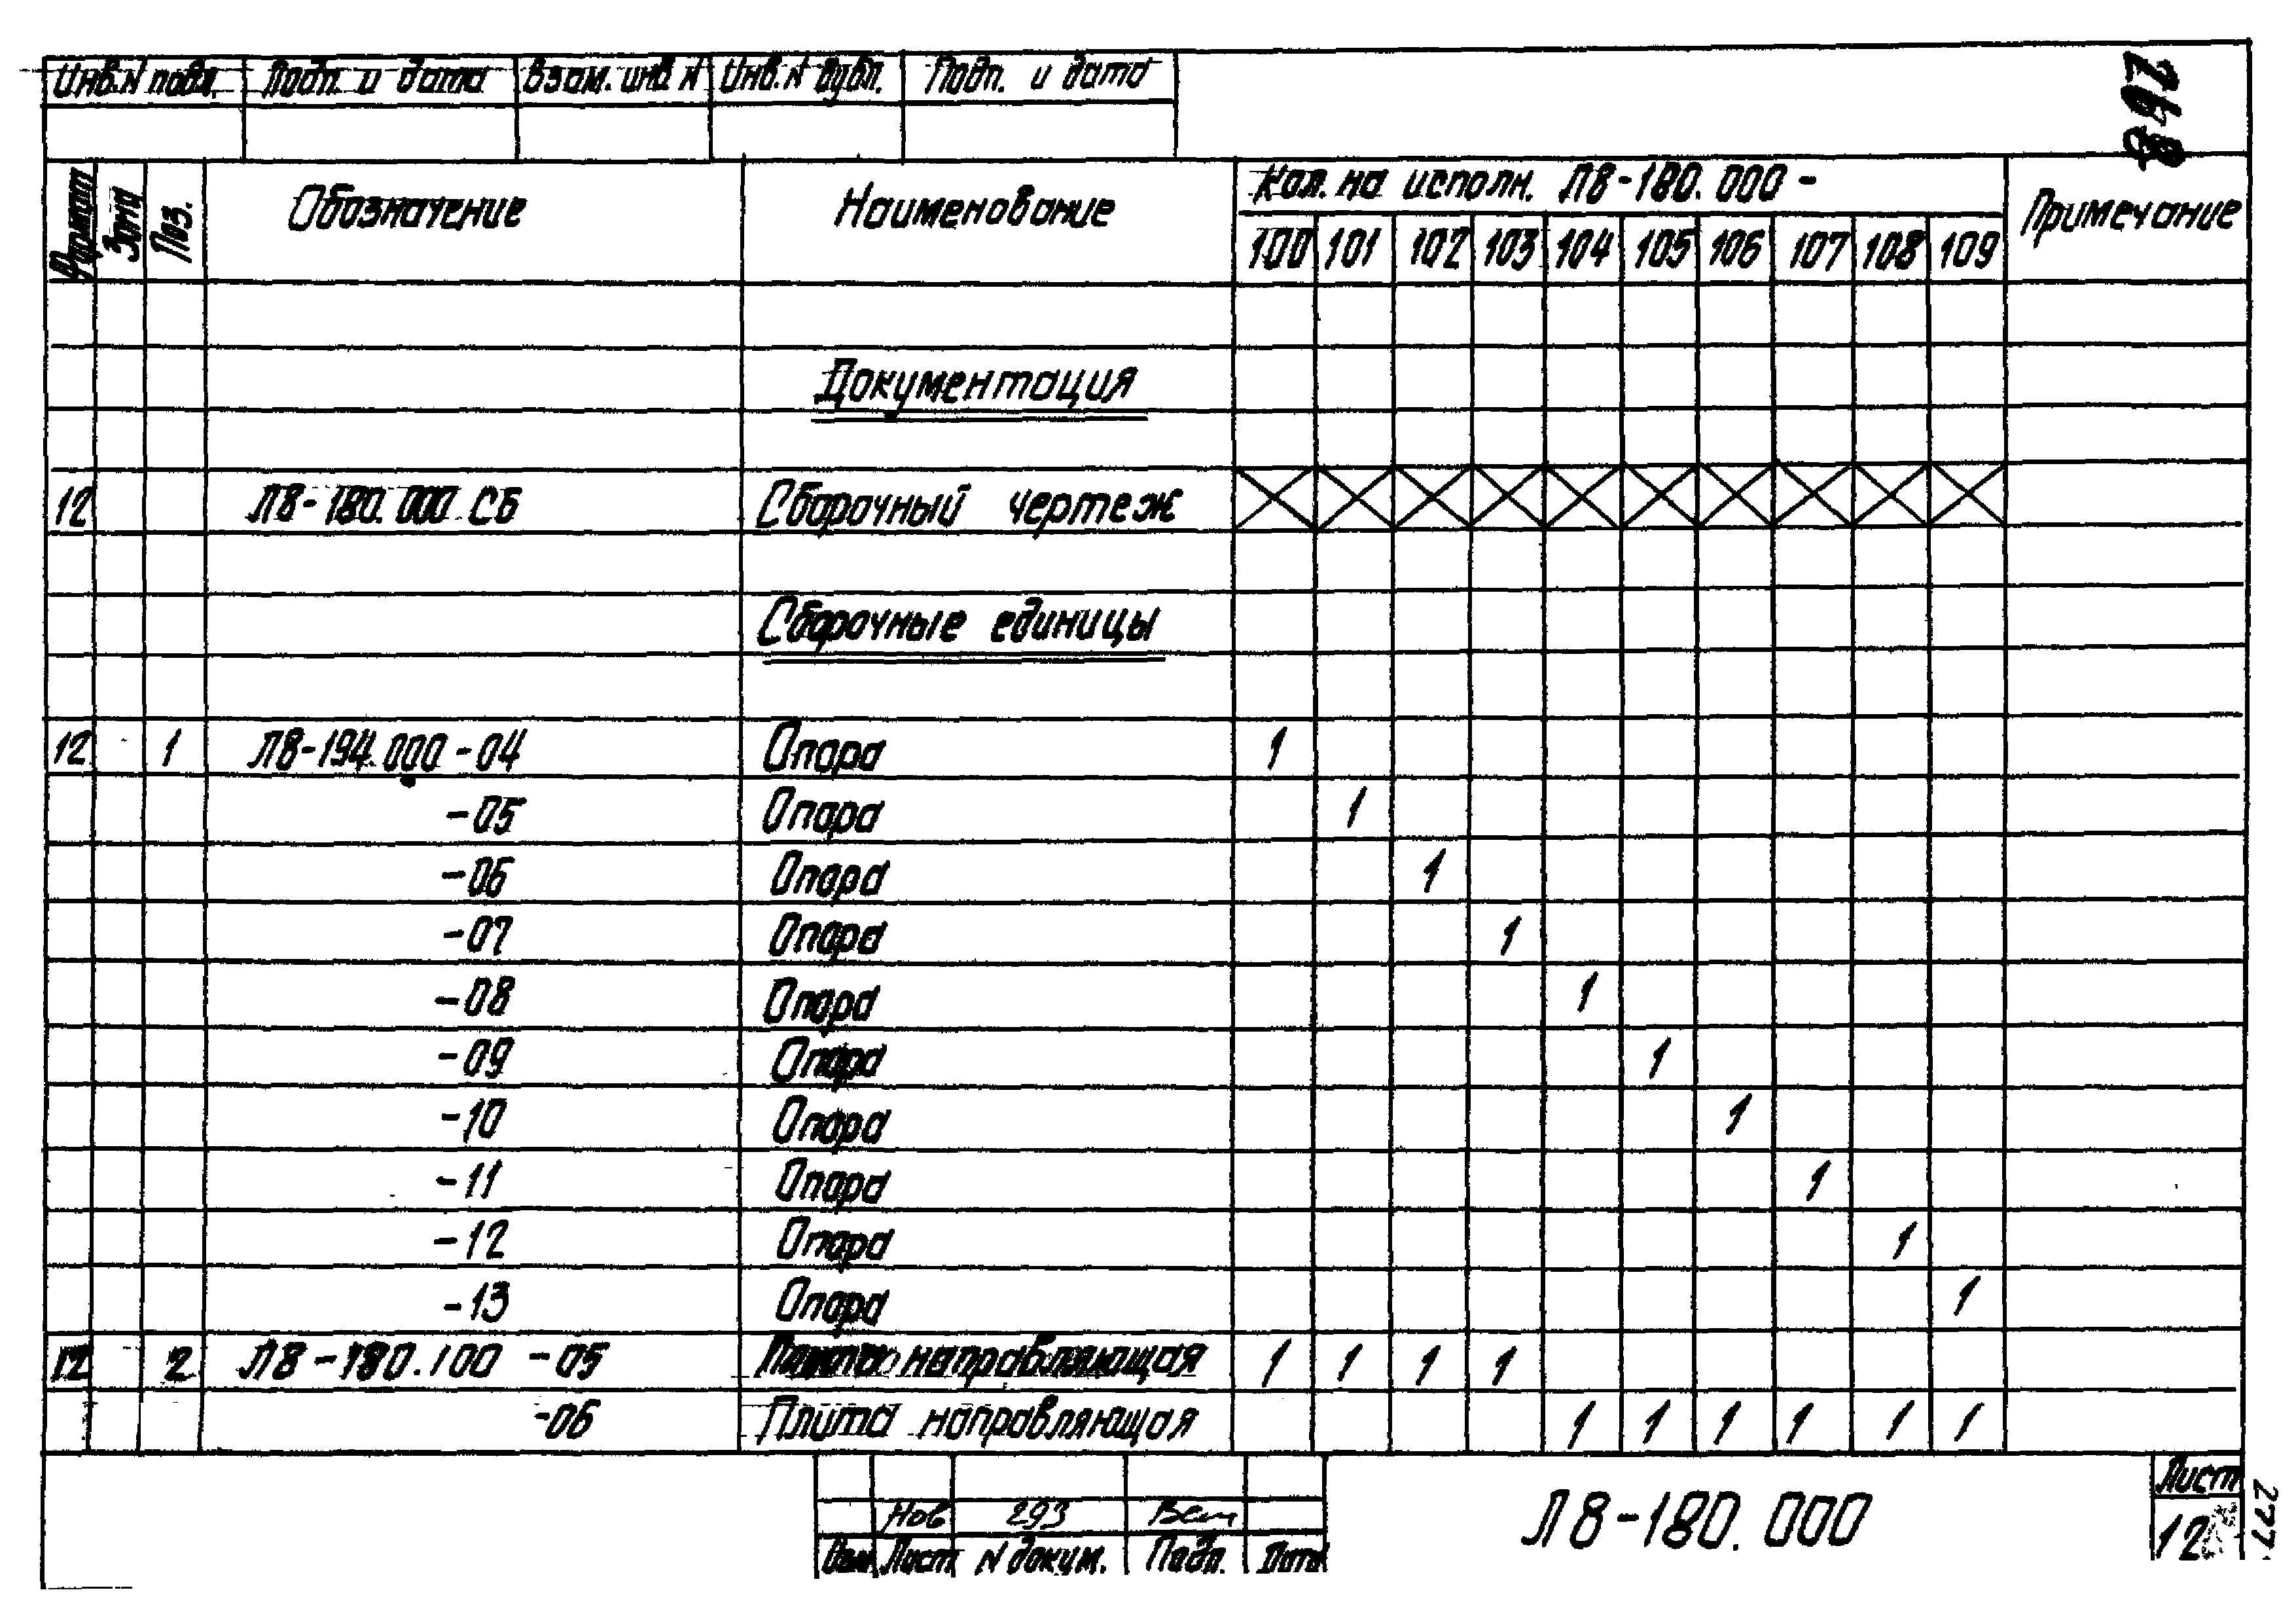 Инв.N подл. Подп. и дата Взам. инв N Инв.N дубл. Подп. и дата
Формат Зона Поз. Обозначение Наименование Кол. на исполн. Л8-180.000- Примечание
100 101 102 103 104 105 106 107 108 109
Документация
12 Л8-180.000 СБ Сборочный чертеж
Сборочные единицы
12 1 Л8-194.000-04 Опора 1
-05 Опора 1
-06 Опора 1
-07 Опора 1
-08 Опора 1
-09 Опора 1
-10 Опора 1
-11 Опора 1
-12 Опора 1
-13 Опора 1
12 2 Л8-180.100 -05 Плита направляющая 1 1 1 1
-06 Плита направляющая 1 1 1 1 1 1
Нов 293
Изм Лист N докум. Подп. Дата
Л8-180.000
Лист
12
277